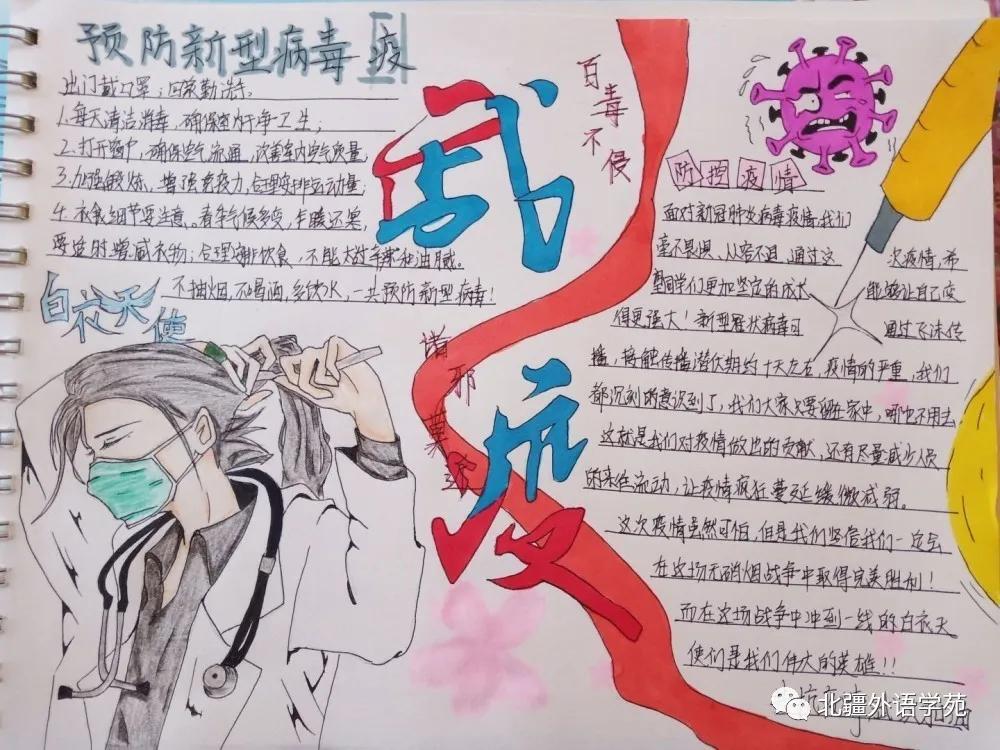 预防新型病毒疫
出门戴口罩;回家勤洗手.
1.每天清洁消毒,确保室内干净卫生;
2.打开窗户,确保空气流通,改善室内空气质量;
3.加强锻炼,增强免疫力,合理安排运动量;
4.衣食细节要注意。春季气候多变,乍暖还寒
要适时增减衣物;合理安排饮食,不能太过辛辣和油腻。
不抽烟,不喝酒,多饮水,一共预防新型病毒!
白衣天使
战疫
百毒不侵
诸邪莫
防控疫情
面对新冠肺炎病毒疫情,我们
毫不畏惧、从容不迫,通过这次疫情,希
望同学们更加坚定的成长 能够让自己变
得更强大!新型冠状病毒可 通过飞沫传
播、接触传播潜伏期约十天左右,疫情的严重,我们
都沉刻的意识到了,我们大家只要留在家中,哪也不用去,
这就是我们对疫情做出的贡献,还有尽量减少人员
的来往流动,让疫情疯狂蔓延缓微减弱。
这次疫情虽然可怕,但是我们坚信我们一定会
在这场无硝烟战争中取得完美胜利!
而在这场战争中冲到一线的白衣天
使们是我们伟大的英雄!!
北疆外语学苑